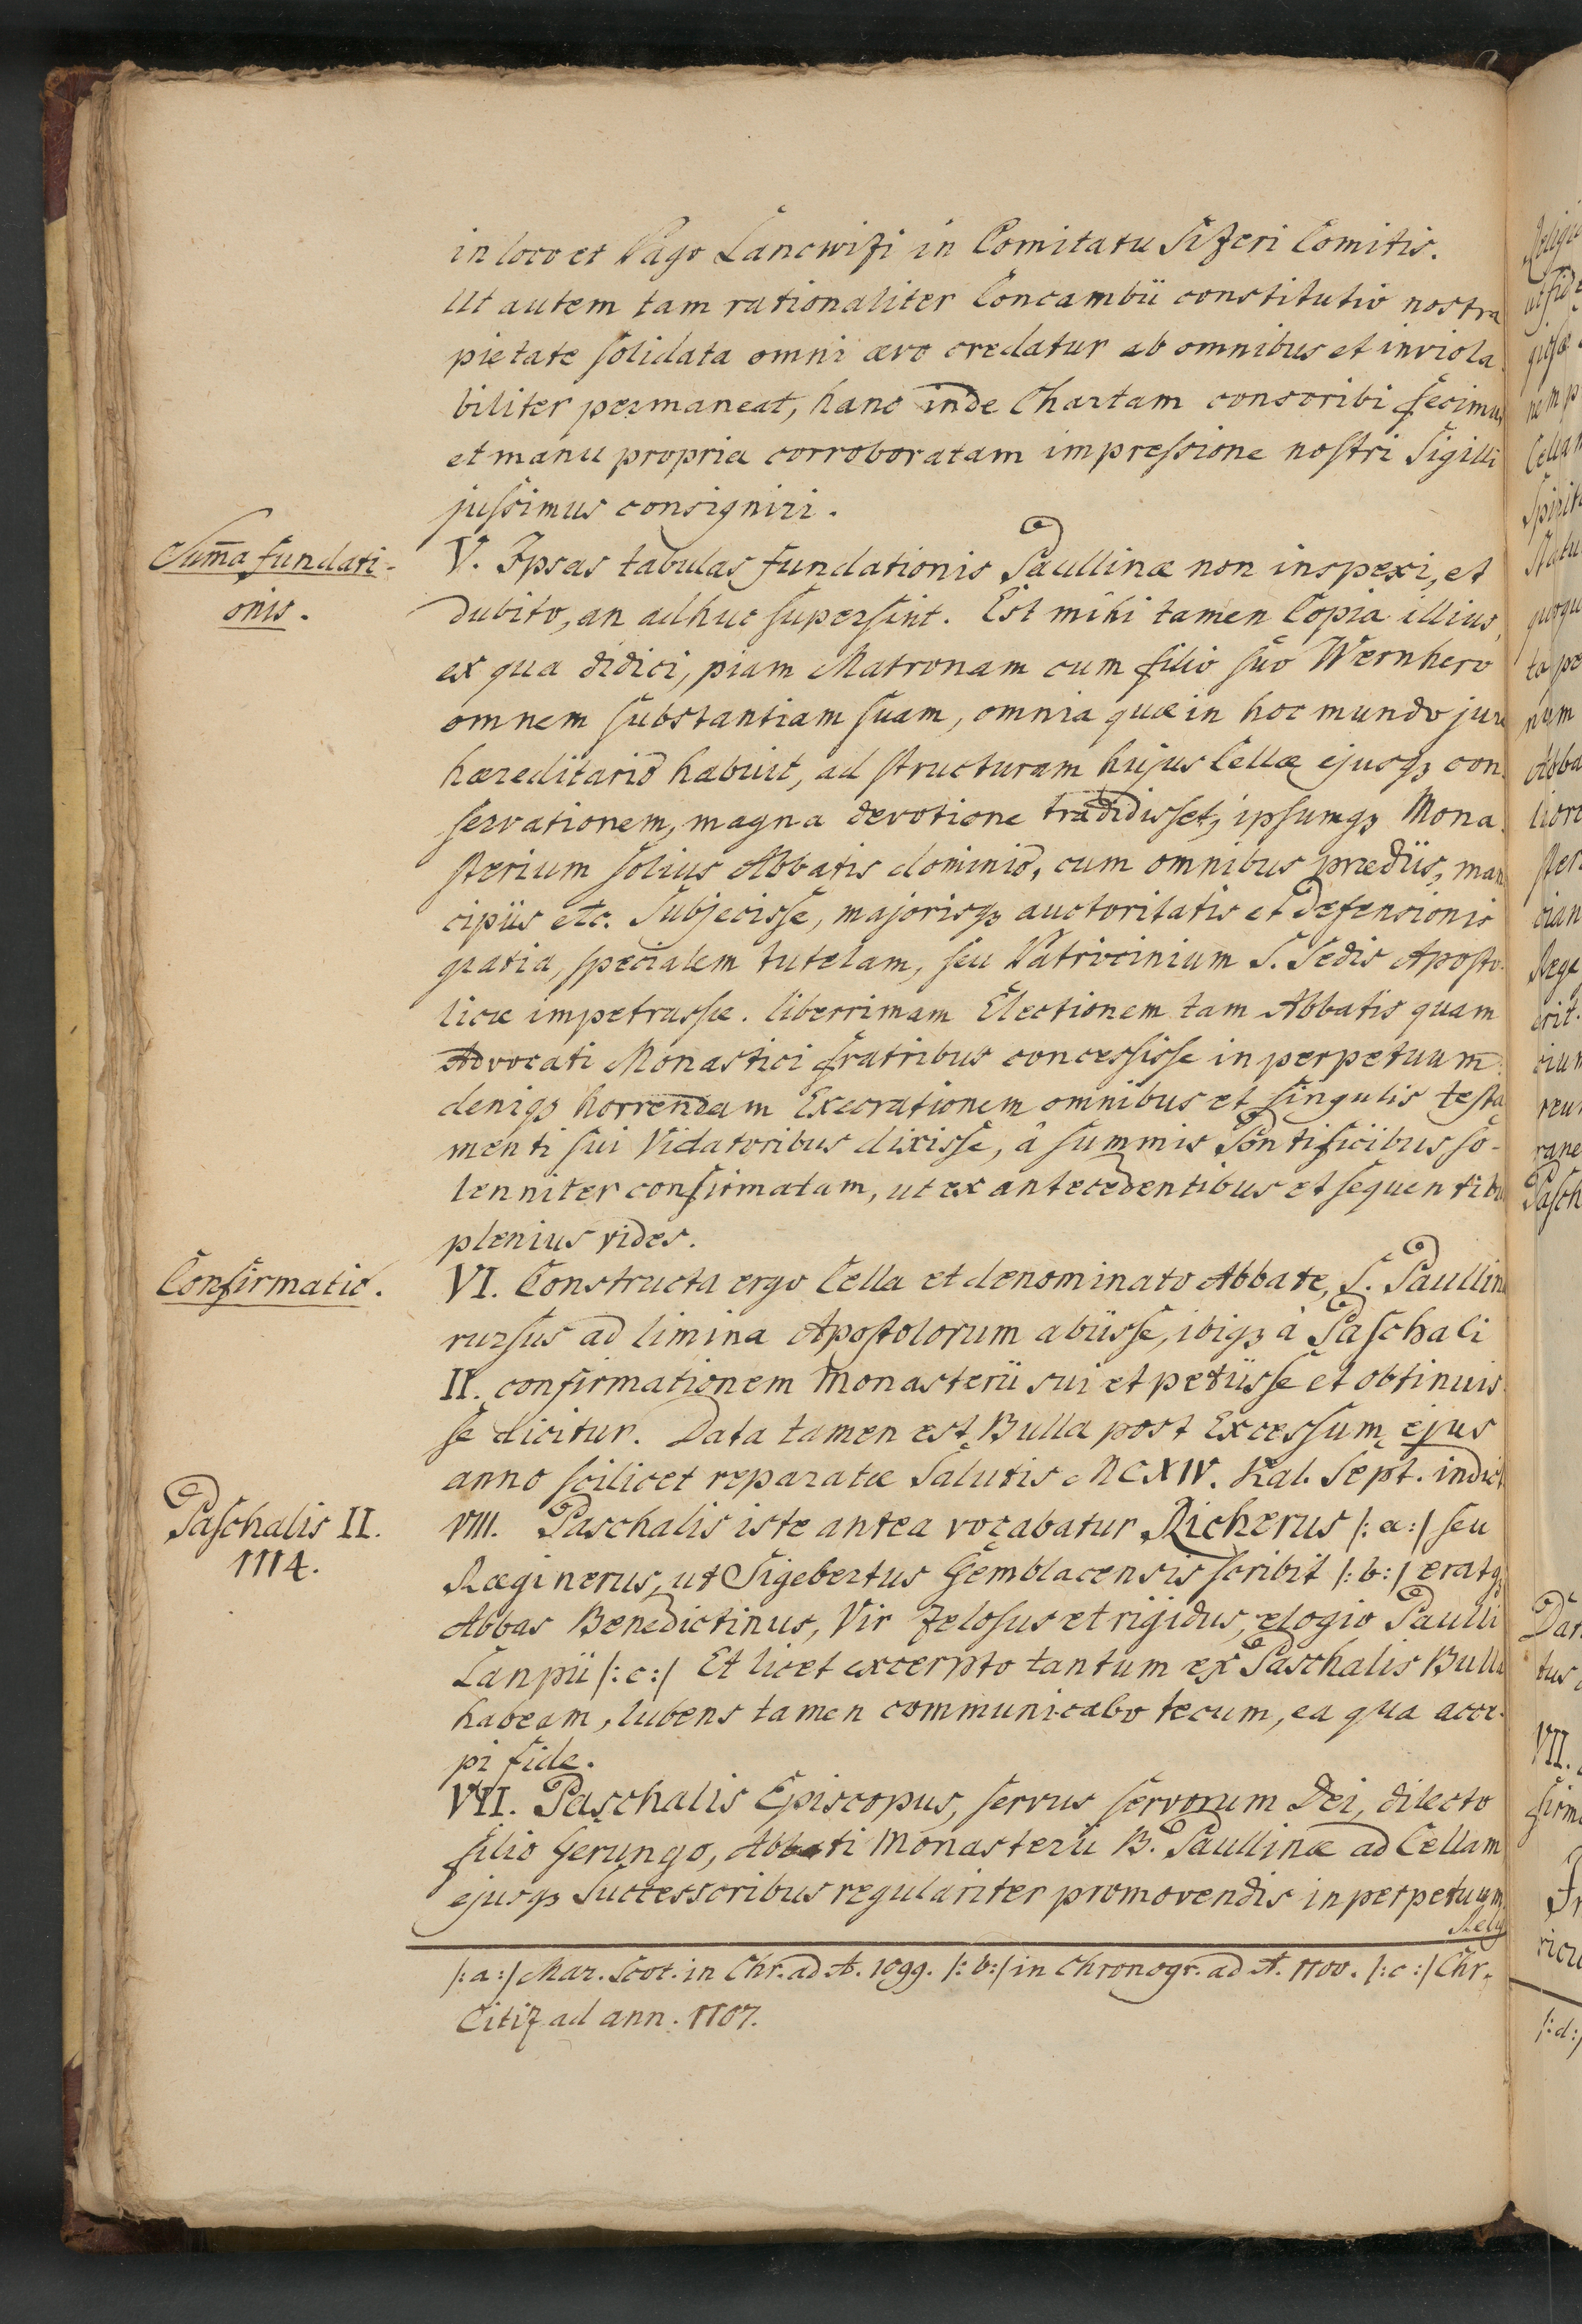 in loco et Pago Lancwizi in Comitatu Sizeri Comitis.
Ut autem tam rationaliter Concambii constitutio nostra
pietate solidata omni ævo credatur ab omnibus et inviola
biliter permaneat, hanc inde Chartam conscribi fecimus
et manu propria corroboratam impressione nostri Sigilli
jussimus consigniri.
Sum̄a fundati-
onis.
V. Ipsas tabulas fundationis Paullinæ non inspexi, et
dubito, an adhuc supersint. Est mihi tamen Copia illius,
ex qua didici, piam Matronam cum filio suo Wernhero
omnem substantiam suam, omnia quæ in hoc mundo jure
hæreditario habuit, ad structuram hujus Cellæ ejusqz con-
servationem, magna devotione tradidisset, ipsumqz Mona-
sterium solius Abbatis dominio, cum omnibus prædiis, man
cipiis etc. Subjecisse, majorisqz auctoritatis et defensionis
gratia, specialem tutelam, seu Patrocinium S. Sedis Aposto-
licæ impetrasse. liberrimam Electionem tam Abbatis quam
Advocati Monastici fratribus concessisse in perpetuum
deniqz horrendam Execrationem omnibus et singulis testa
menti sui Violatoribus dixisse, â summis Pontificiibus so-
lenniter confirmatam, ut ex antecedentibus et sequentibus
plenius vides.
Confirmatio.
VI. Constructa ergo Cella et denominato Abbate, S. Paullina
rursus ad limina Apostolorum abiisse, ibiqz à Paschali
II. confirmationem Monasterii sui et petiisse et obtinuis
se dicitur. Data tamen est Bulla post Excessum ejus
anno scilicet reparatæ Salutis MCXIV. Kal. Sept. indict
Paschalis II.
1114.
VIII. Paschalis iste antea vocabatur Richerus /:a:/ seu
Ræginerus, ut Sigebertus Gemblacensis scribit /:b:/ eratqz
Abbas Benedictinus, Vir zelosus et rigidus, elogio Paulli
Lanpii /:c:/ Et licet excerpto tantum ex Paschalis Bulla
habeam, lubens tamen communicabo tecum, ea qua acce-
pi fide.
VII. Paschalis Episcopus, servus servorum Dei, dilecto
filio Gerungo, Abbati Monasterii B. Paullinæ ad Cellam
ejusqz Successoribus regulariter promovendis in perpetuum
Relig
/:a:/ Mar. Scot. in Chr. ad A. 1099. /:b:/ in Chronogr. ad A. 1100. /:c:/ Chr.
Citiz ad ann. 1107.